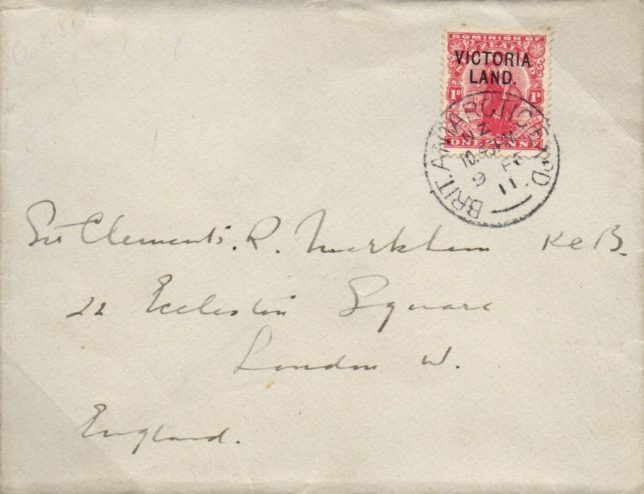 DOMINION OF
NEW ZEALAND
VICTORIA
LAND.
1D 1D
ONE PENNY
BRIT. ANTARCTIC EXPD
N Z
10.45PM
9 FE
11
Sir Clements. R. Markham K C B.
21 Eccleston Square
London W.
England.